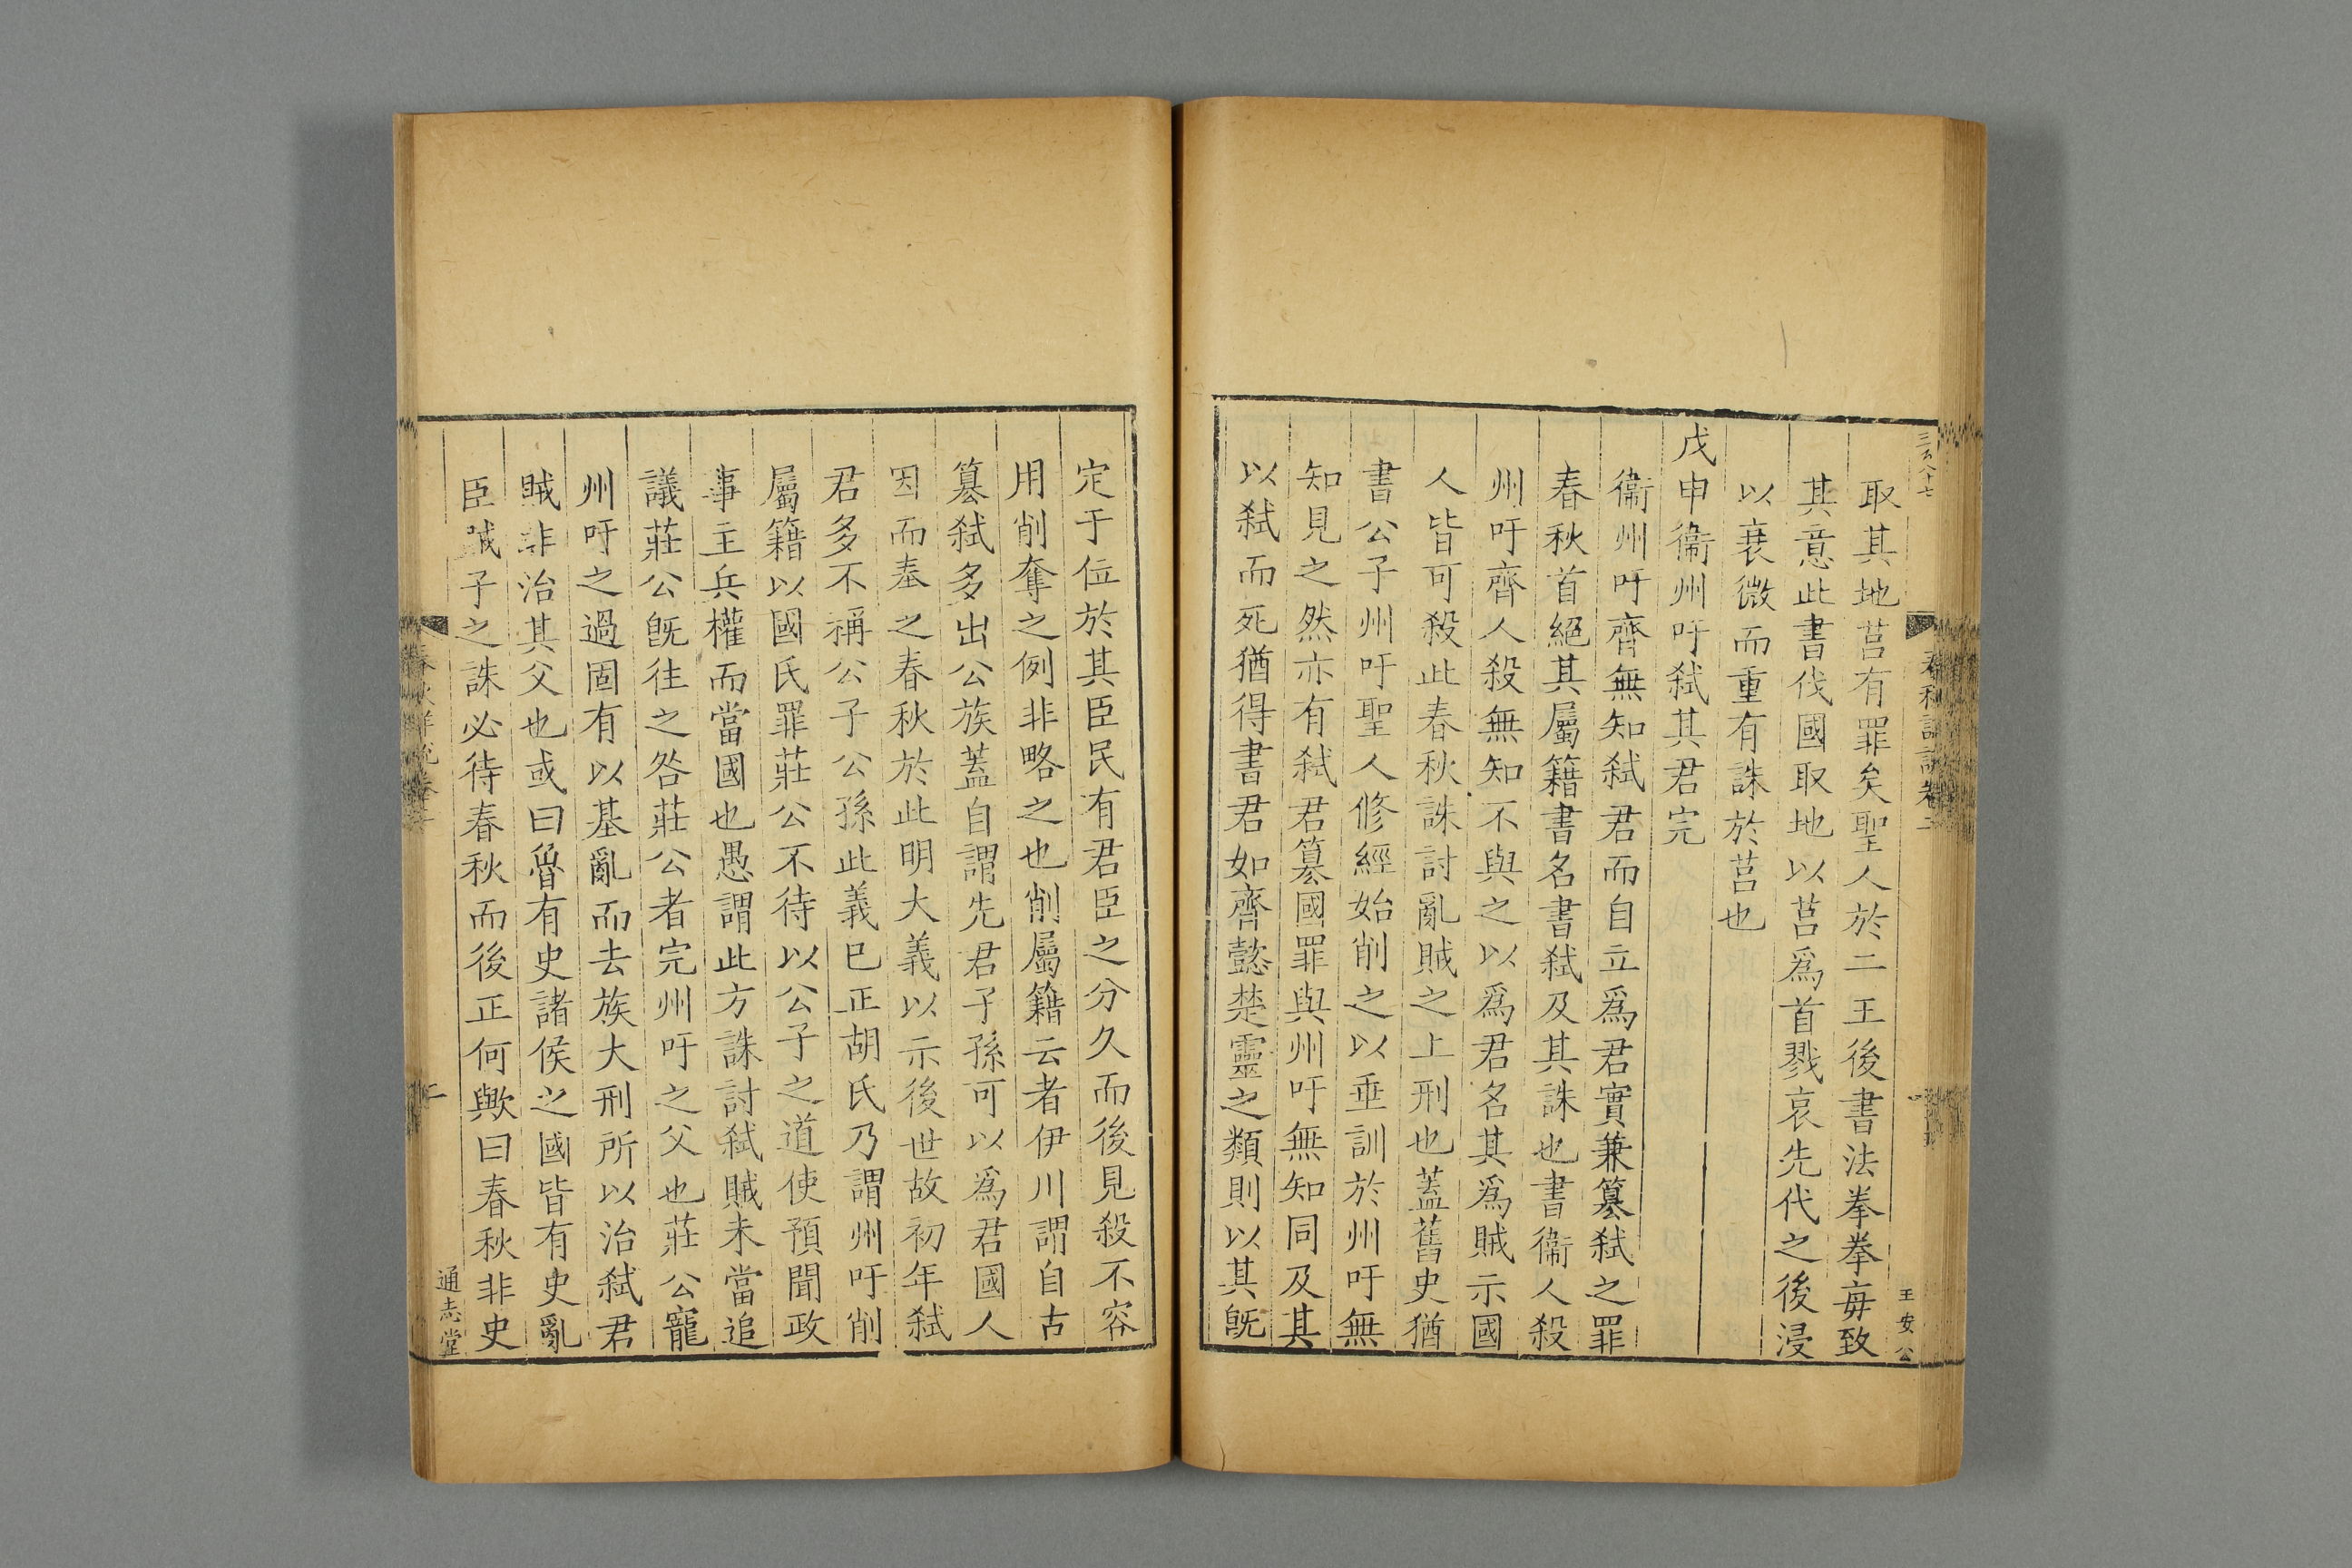 取其地莒有罪矣聖人於二王後書法拳拳毋致
其意此書伐國取地以莒爲首戮哀先代之後浸
以衰微而重有誅於莒也
戊申衞州吁弑其君完
衞州吁齊無知弑君而自立爲君實兼篡弑之罪
春秋首絕其屬籍書名書弑及其誅也書衞人殺
州吁齊人殺無知不與之以爲君名其爲賊示國
人皆可殺此春秋誅討亂賊之上刑也蓋舊史猶
書公子州吁聖人修經始削之以垂訓於州吁無
知見之然亦有弑君篡國罪與州吁無知同及其
以弑而死猶得書君如齊懿楚靈之類則以其旣
王安公
定于位於其臣民有君臣之分久而後見殺不容
用削奪之例非略之也削屬籍云者伊川謂自古
篡弑多出公族蓋自謂先君子孫可以爲君國人
因而奉之春秋於此明大義以示後世故初年弑
君多不稱公子公孫此義已正胡氏乃謂州吁削
屬籍以國氏罪莊公不待以公子之道使預聞政
事主兵權而當國也愚謂此方誅討弑賊未當追
議莊公旣往之咎莊公者完州吁之父也莊公寵
州吁之過固有以基亂而去族大刑所以治弑君
賊非治其父也或曰魯有史諸侯之國皆有史亂
臣賊子之誅必待春秋而後正何歟曰春秋非史
春秋詳說卷二
二
通志堂